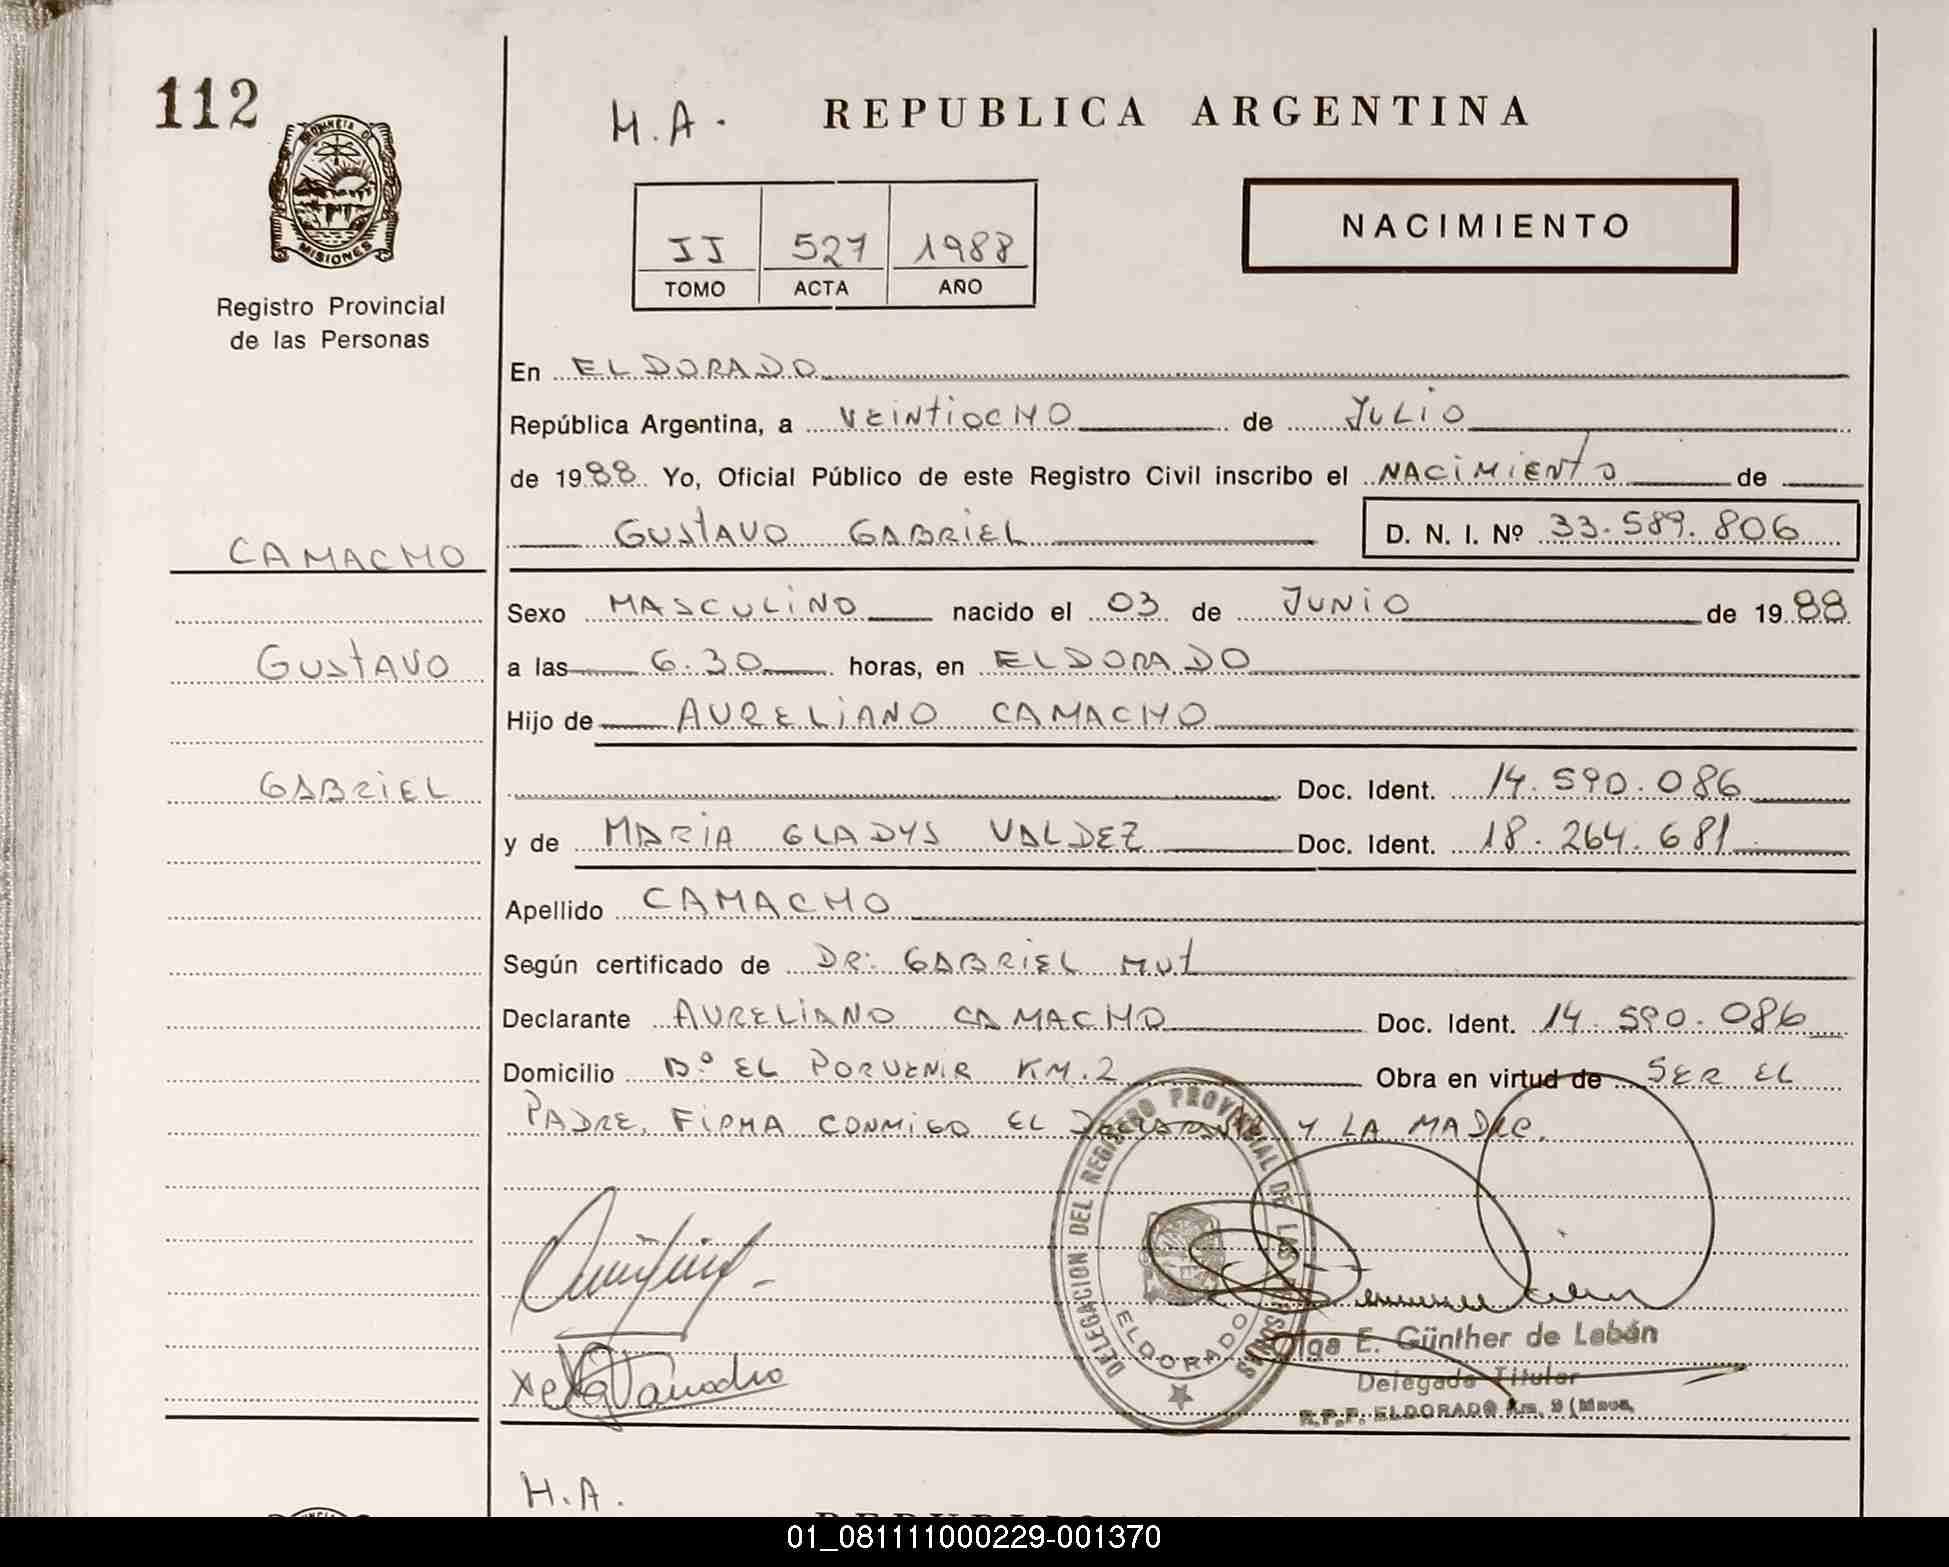 112
H.A.
REPUBLICA ARGENTINA
PROVINCIA D MISIONES
Registro Provincial
de las Personas
II 527 1988
TOMO ACTA AÑO
NACIMIENTO
En ELDORADO
República Argentina, a VEINTIOCHO de JULIO
de 1988 Yo, Oficial Público de este Registro Civil inscribo el NACIMIENTO de
GUSTAVO GABRIEL D. N. I. Nº 33.589.806
CAMACHO
GUSTAVO
GABRIEL
Sexo MASCULINO nacido el 03 de JUNIO de 1988
a las 6.30 horas, en ELDORADO
Hijo de AURELIANO CAMACHO
Doc. Ident. 14.590.086
y de MARIA GLADYS VALDEZ Doc. Ident. 18.264.681
Apellido CAMACHO
Según certificado de DR: GABRIEL MUT
Declarante AURELIANO CAMACHO Doc. Ident. 14.590.086
Domicilio Bº EL PORVENIR KM.2 Obra en virtud de SER EL
PADRE, FIRMA CONMIGO EL DECLARANTE Y LA MADRE.
DELEGACION DEL REGISTRO PROVINCIAL DE LAS PERSONAS
ELDORADO
Olga E. Günther de Labán
Delegada Titular
R.P.P. ELDORADO Km. 9 (Mnes.
H.A.
01_081111000229-001370